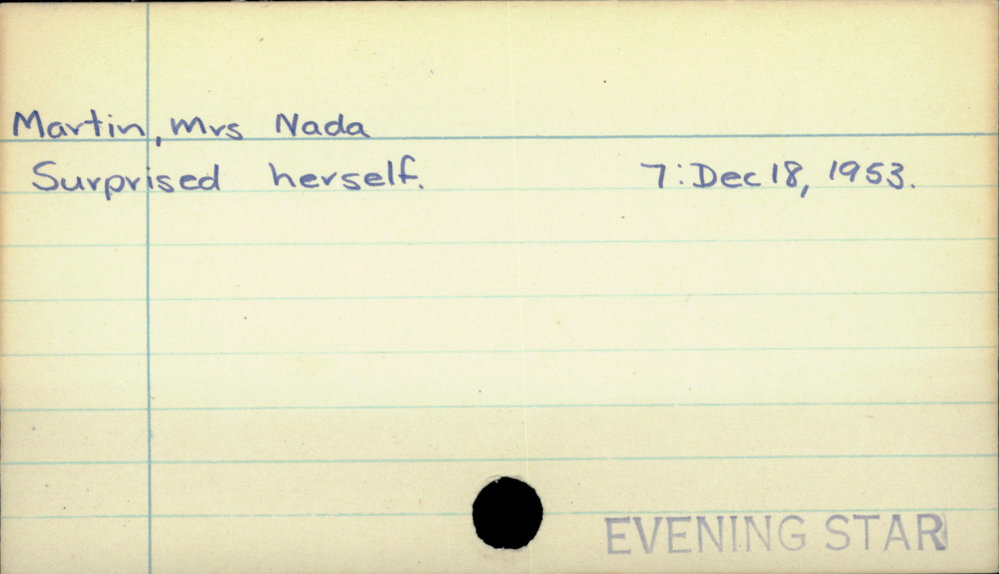 Martin, Mrs Nada
Surprised herself. 7: Dec 18, 1953.
EVENING STAR